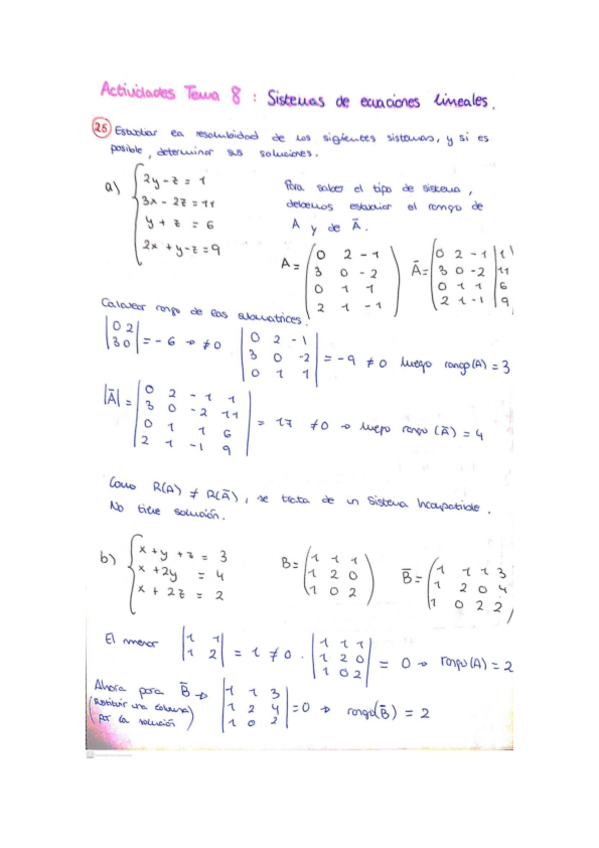 Actividades Tema 8 : Sistemas de ecuaciones lineales.
25 Estudiar la resolubilidad de los sigientes sistemas, y si es
posible, determinar sus soluciones.
a) { 2y - z = 1
3x - 2z = 11
y + z = 6
2x + y - z = 9
Para saber el tipo de sistema,
debemos estudiar el rango de
A y de Ā.
A = ( 0 2 -1
3 0 -2
0 1 1
2 1 -1 )
Ā = ( 0 2 -1 | 1
3 0 -2 | 11
0 1 1 | 6
2 1 -1 | 9 )
Calcular rango de las submatrices.
| 0 2
3 0 | = -6 → ≠ 0
| 0 2 -1
3 0 -2
0 1 1 | = -9 ≠ 0 luego rango(A) = 3
|Ā| = | 0 2 -1 1
3 0 -2 11
0 1 1 6
2 1 -1 9 | = 17 ≠ 0 → luego rango (Ā) = 4
Como R(A) ≠ R(Ā), se trata de un Sistema Incompatible.
No tiene solución.
b) { x + y + z = 3
x + 2y = 4
x + 2z = 2
B = ( 1 1 1
1 2 0
1 0 2 )
B̄ = ( 1 1 1 3
1 2 0 4
1 0 2 2 )
El menor | 1 1
1 2 | = 1 ≠ 0 .
| 1 1 1
1 2 0
1 0 2 | = 0 → rango(A) = 2
Ahora para B̄ →
(sustituir una columna
por la solución)
| 1 1 3
1 2 4
1 0 2 | = 0 → rango(B̄) = 2